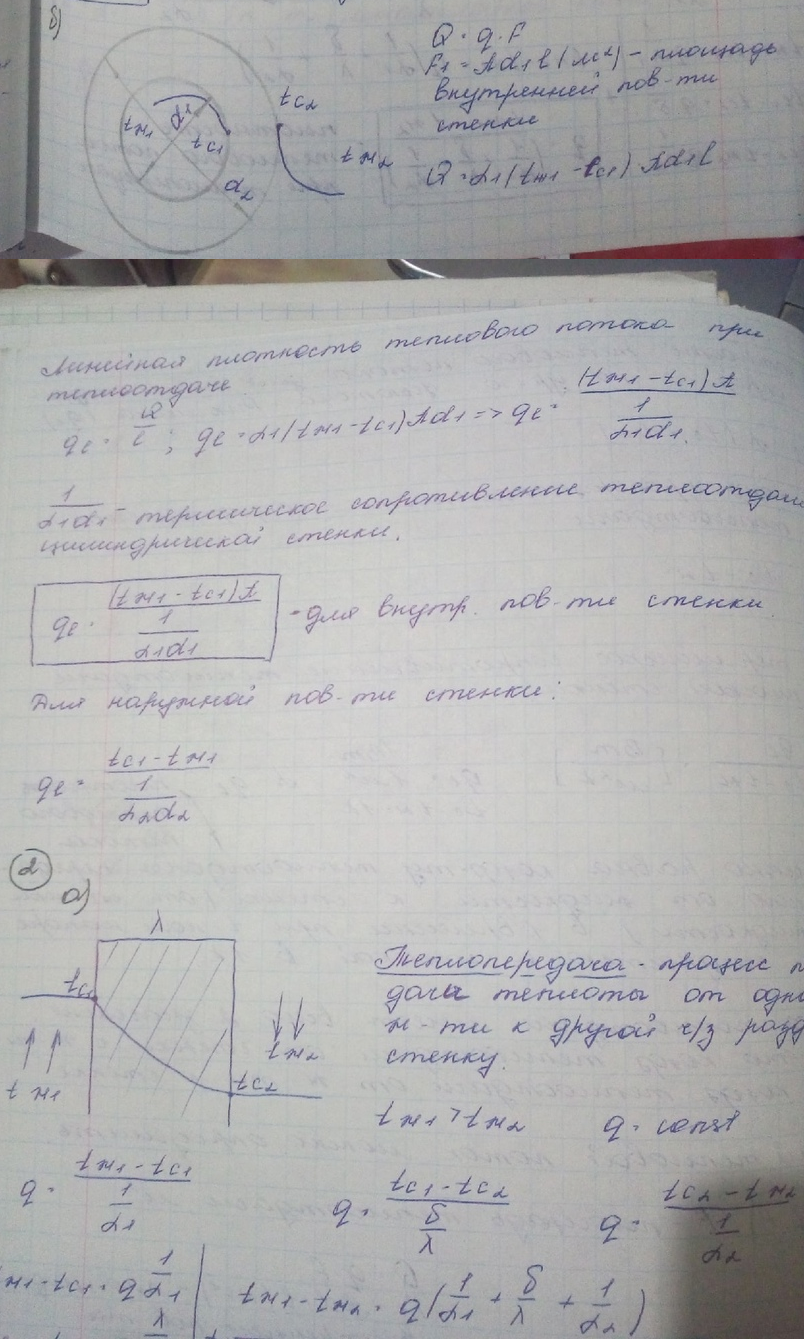 б)
d1
tж1
tc1
d2
tc2
tж2
Q = q·F
F1 = πd1l (м²) - площадь
внутренней пов-ти
стенки
Q = α1(tж1 - tc1) πd1l
Линейная плотность теплового потока при
теплоотдаче
qe = Q/l ; qe = α1(tж1 - tc1)πd1 => qe = (tж1 - tc1)π / (1/α1d1).
1/α1d1 - термическое сопротивление теплоотдачи
цилиндрической стенки.
qe = (tж1 - tc1)π / (1/α1d1) - для внутр. пов-ти стенки.
Для наружной пов-ти стенки:
qe = (tc1 - tж1) / (1/α2d2)
2
а)
λ
tc1
tж1
tж2
tc2
Теплопередача - процесс
дача теплоты от
ж-ти к другой ч/з
стенку.
tж1 > tж2 q = const
q = (tж1 - tc1) / (1/α1) q = (tc1 - tc2) / (δ/λ) q = (tc2 - tж2) / (1/α2)
ж1 - tc1 = q 1/α1 | tж1 - tж2 = q(1/α1 + δ/λ + 1/α2)